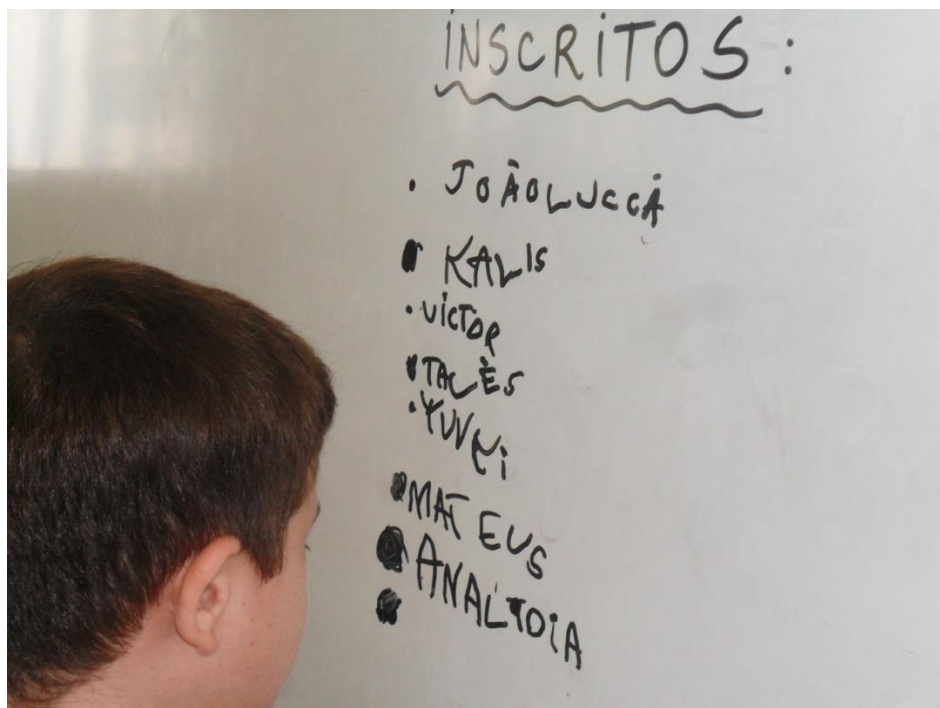 INSCRITOS:
• JOÃOLUCCA
• KALIS
• VICTOR
• TALES
• YUVKI
• MATEUS
• ANALIDIA
•